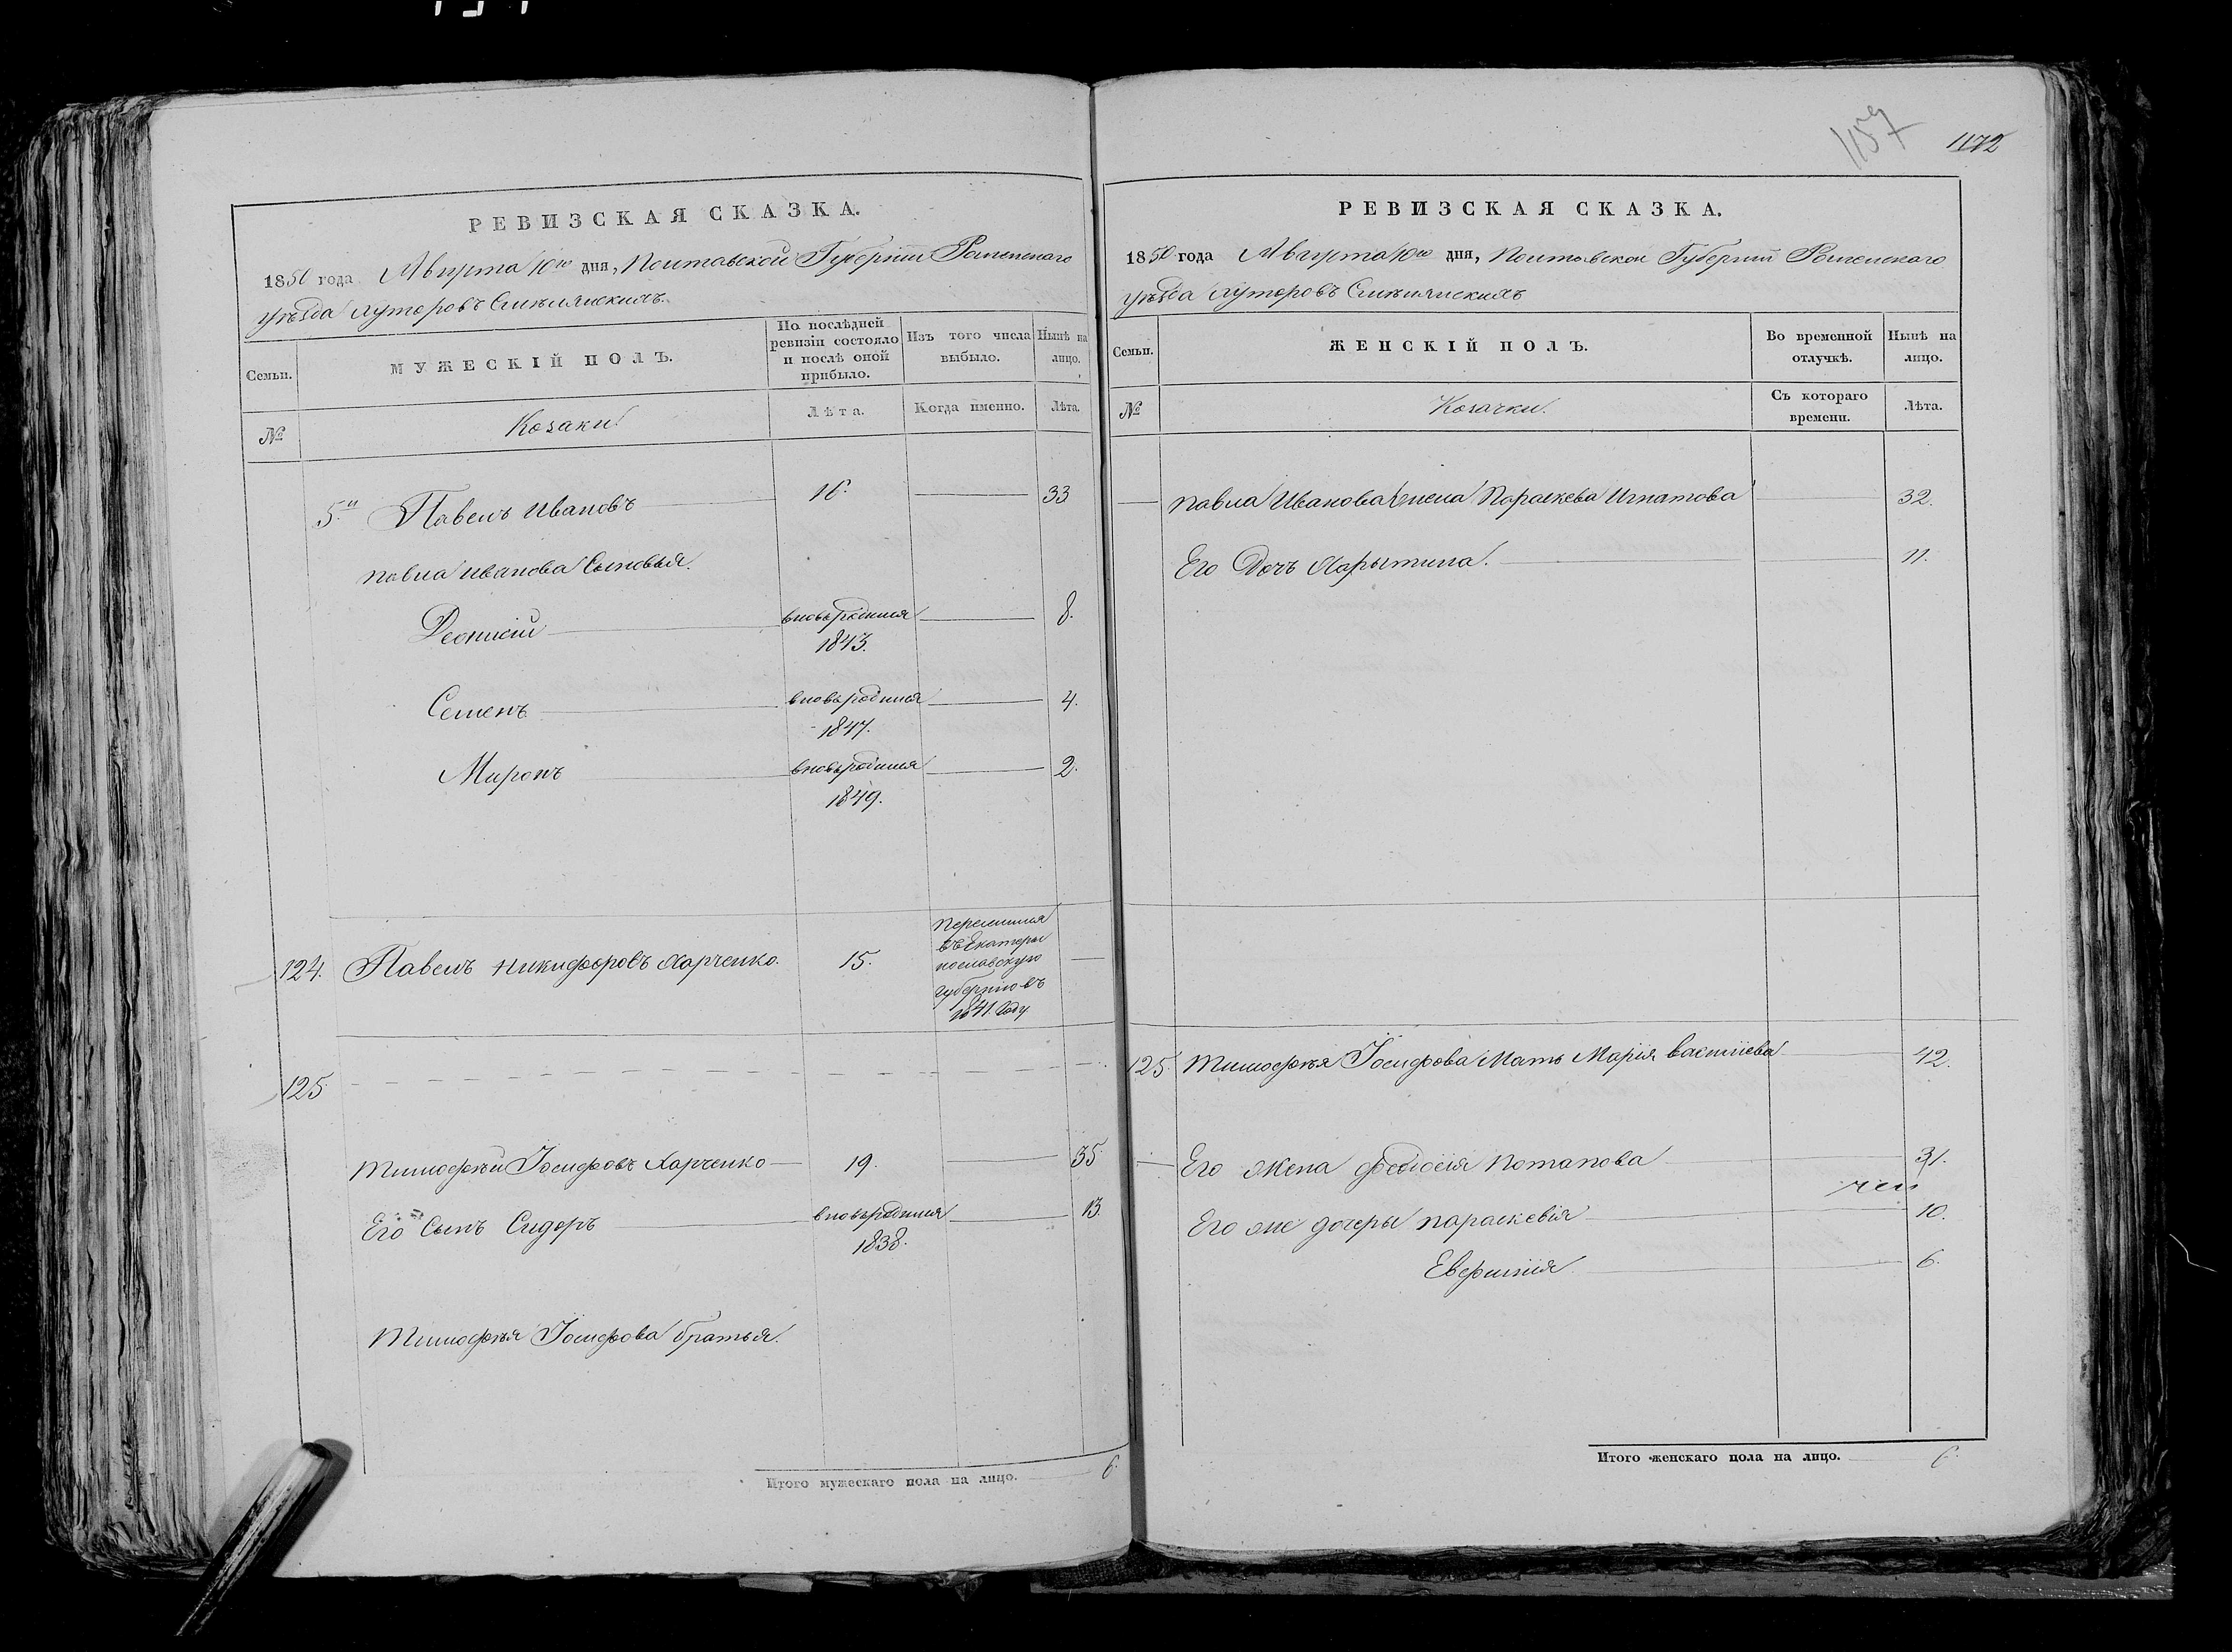 1157
1172
РЕВИЗСКАЯ СКАЗКА.
1850 года Августа 10го дня, Полтавской Губерніи Роменскаго
уѣзда хуторовъ Смѣлянскихъ.
Семьи.
МУЖЕСКІЙ ПОЛЪ.
По послѣдней ревизіи состояло и послѣ оной прибыло.
Изъ того числа выбыло.
Нынѣ на лицо.
№
Козаки
Лѣта.
Когда именно.
Лѣта.
5.й Павелъ Ивановъ 33
Павла Иванова Сыновья.
Деонисій вновьродился 1843. 8.
Семенъ вновьродился 1847. 4.
Миронъ вновьродился 1849. 2.
124. Павелъ Никифоровъ Харченко. 15. Переселился
въ Екатери
нославскую
губернію въ
1841. Году
125
Тимофѣй Іосифовъ Харченко 19. 35.
Его Сынъ Сидоръ вновьродился 1838. 13
Тимофѣя Іосифова братья.
Итого мужескаго пола на лицо. 6.
РЕВИЗСКАЯ СКАЗКА.
1850 года Августа 10го дня, Полтавской Губерніи Роменскаго
уѣзда хуторовъ Смѣлянскихъ
Семьи.
ЖЕНСКІЙ ПОЛЪ.
Во временной отлучкѣ.
Нынѣ на лицо.
№
Козачки.
Съ котораго времени.
Лѣта.
Павла Иванова жена Параскева Игнатова 32.
Его Дочъ Харытина. 11.
125. Тимофѣя Іосифова Мать Марія Василіева 42.
Его жена Феодосія Потапова 31.
Его же дочеры Параскевія 10.
6.
Итого женскаго пола на лицо. 6.